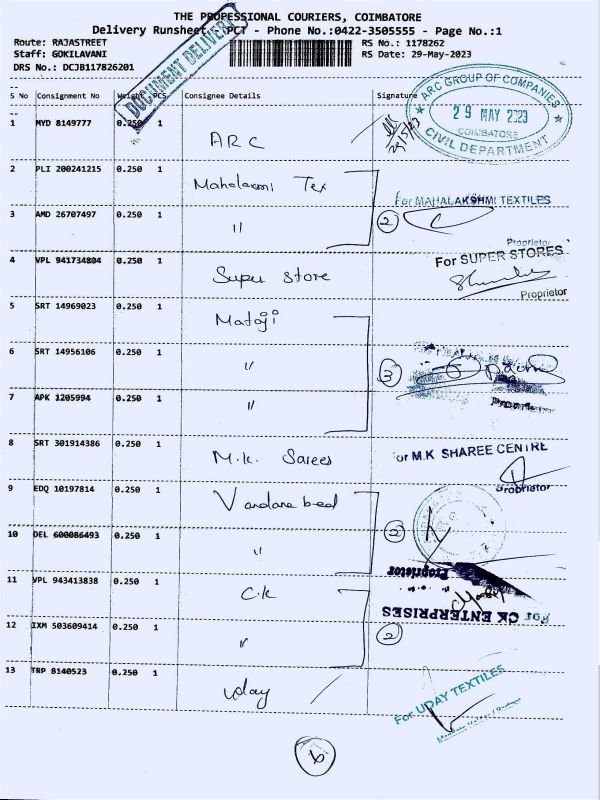 THE PROFESSIONAL COURIERS, COIMBATORE
Delivery Runsheet - PCT - Phone No.:0422-3505555 - Page No.:1
Route: RAJASTREET
RS No.: 1178262
Staff: GOKILAVANI
RS Date: 29-May-2023
DRS No.: DCJB117826201
DOCUMENT DELIVERY
S No Consignment No Weight PCS. Consignee Details Signature
ARC GROUP OF COMPANIES
29 MAY 2023
COIMBATORE
CIVIL DEPARTMENT
1 MYD 8149777 0.250 1 ARC
29/5/23
2 PLI 200241215 0.250 1 Mahalaxmi Tex
For MAHALAKSHMI TEXTILES
3 AMD 26707497 0.250 1 "
2
Proprietor
4 VPL 941734804 0.250 1 Super Store
For SUPER STORES
Proprietor
5 SRT 14969023 0.250 1 Mataji
6 SRT 14956106 0.250 1 "
3
7 APK 1205994 0.250 1 "
8 SRT 301914386 0.250 1 M.K. Sarees
For M.K SHAREE CENTRE
Proprietor
9 EDQ 10197814 0.250 1 Vandana bed
10 DEL 600086493 0.250 1 "
2
Proprietor
11 VPL 943413838 0.250 1 C.K
For CK ENTERPRISES
12 IXM 503609414 0.250 1 "
2
13 TRP 8140523 0.250 1 Uday
For UDAY TEXTILES
6